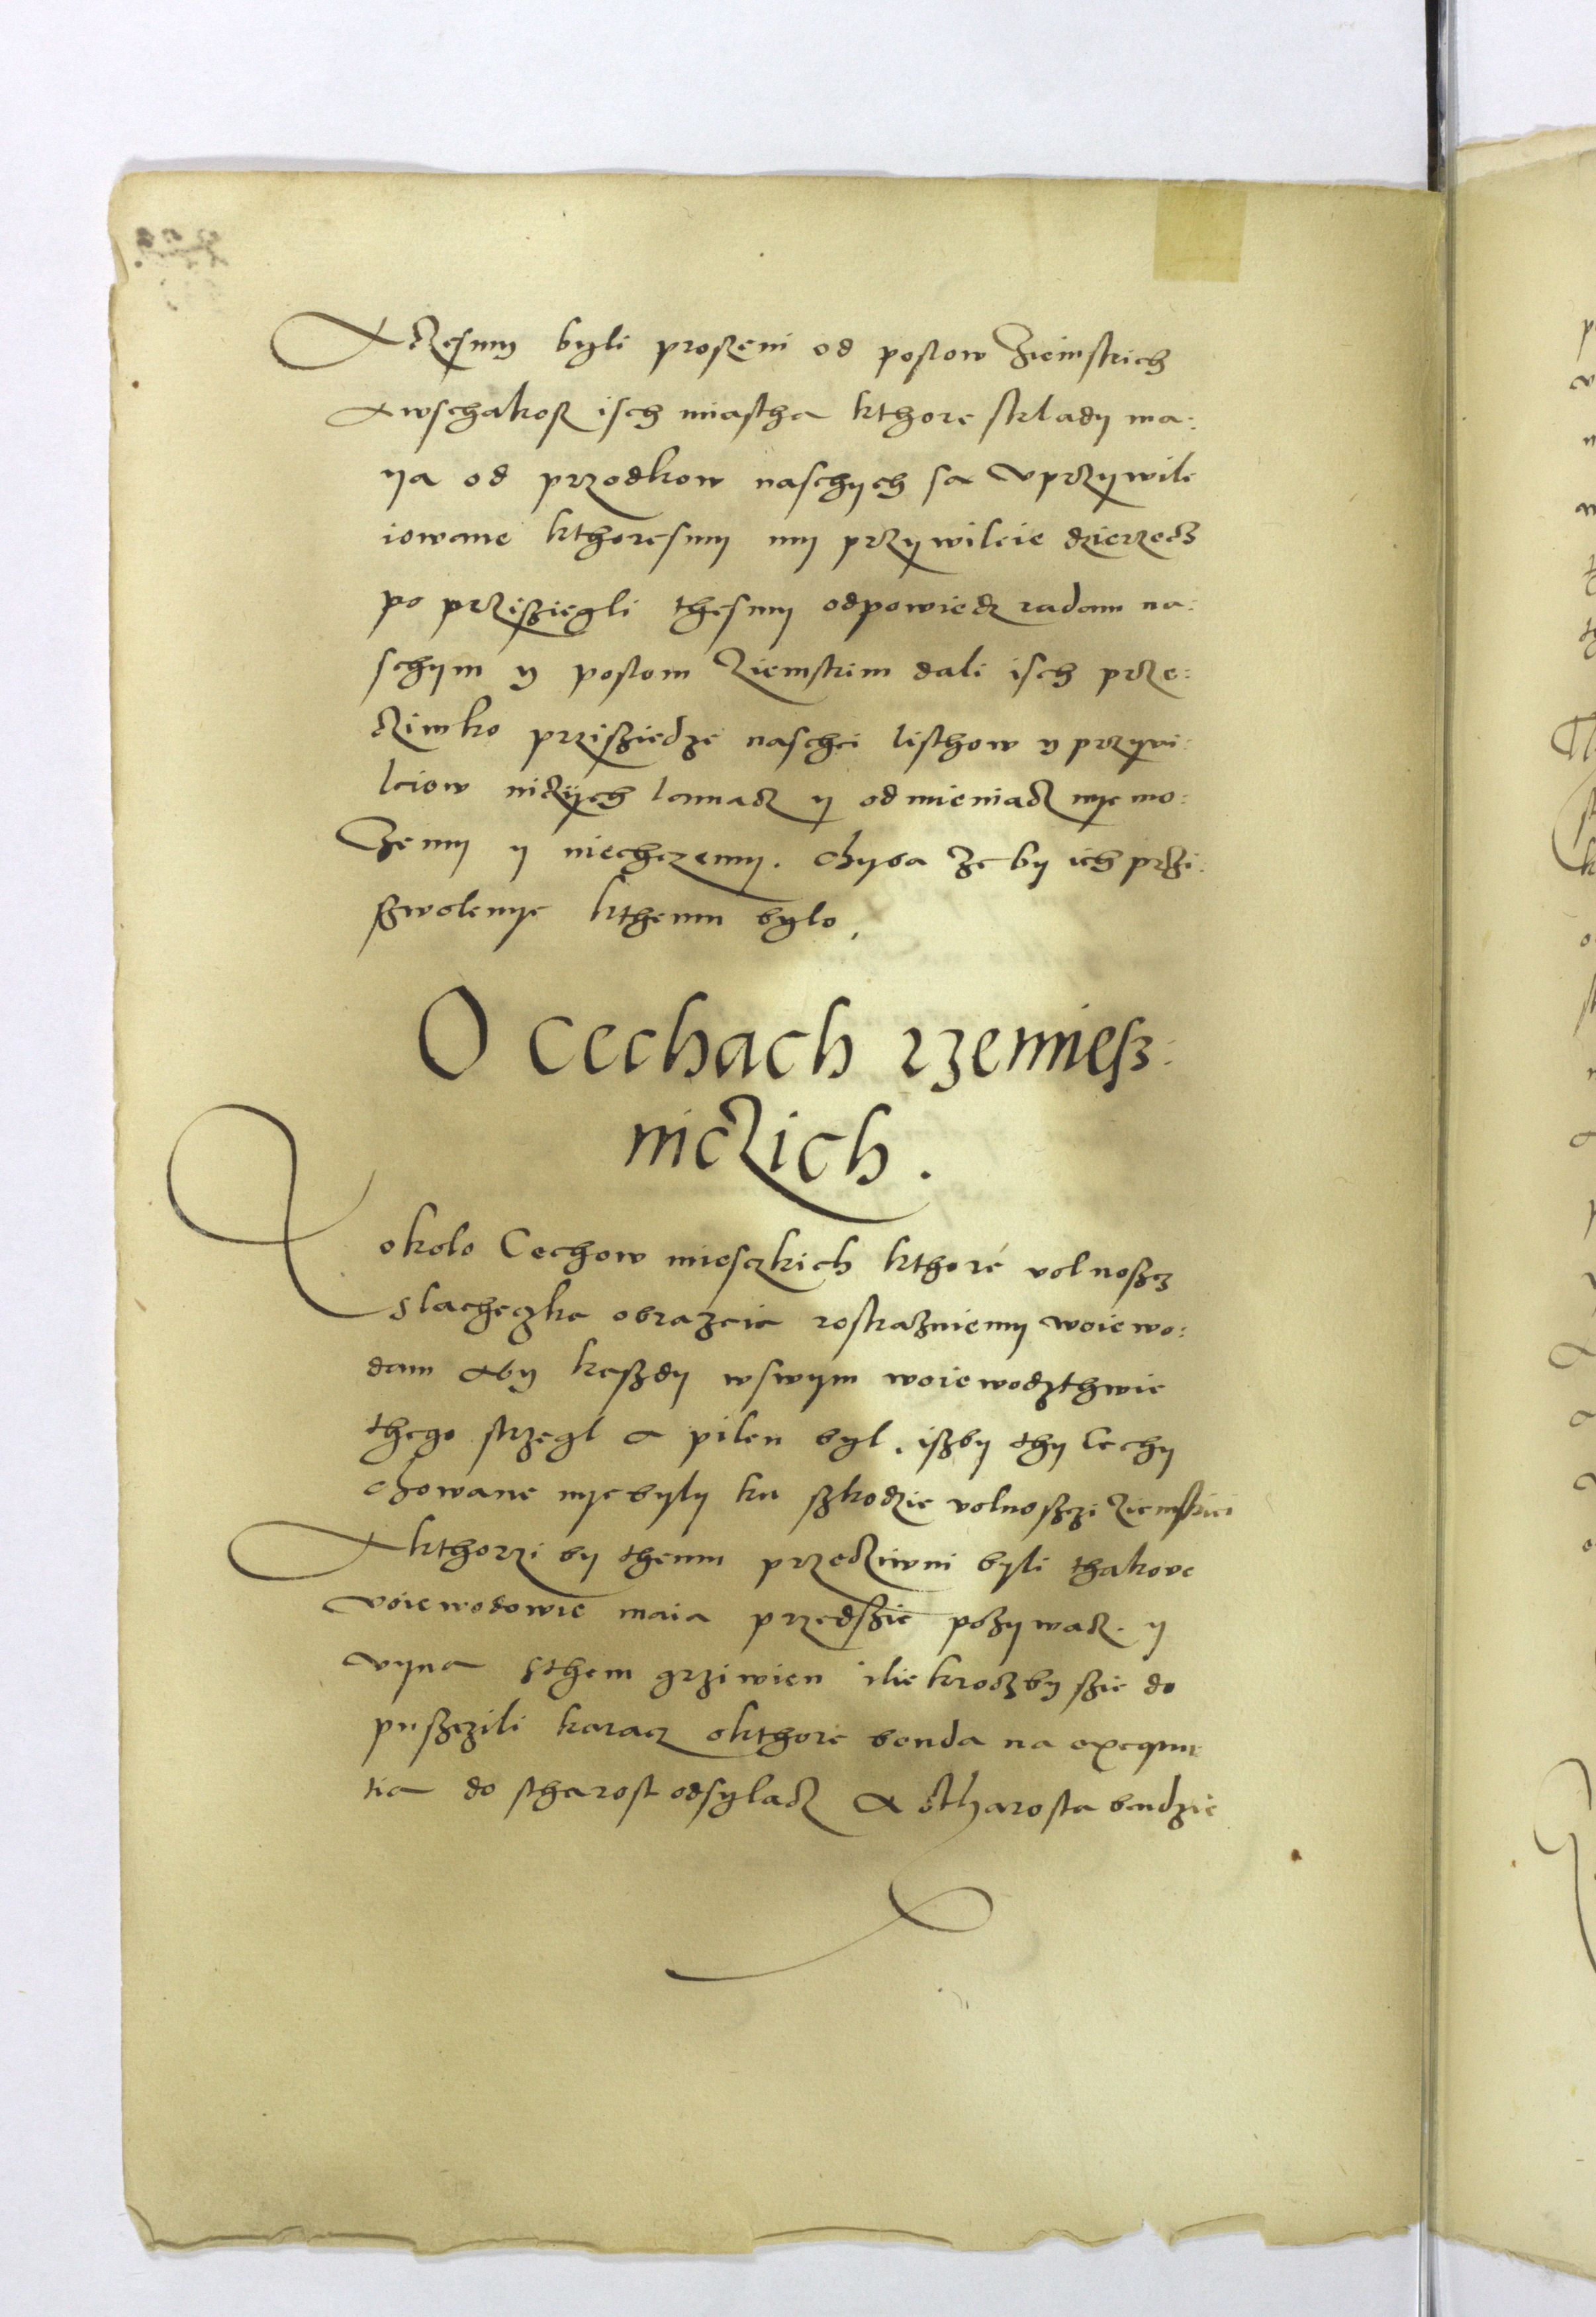 Aczesmy byli proszeni od poslow ziemskich
Awschakosz isch miastha kthore sklady ma:
ya od przodkow naschych sa uprzywile
iowane kthoresmy my przywileie dzierzecz
po przisziegli thesmy odpowiedz radam na:
schym y poslom ziemskim dali isch prze:
cziwko przisziedze naschei listhow y przywi:
leiow niczyich lamacz y odmieniacz nye mo:
zemy y niechczemy. chyba ze by ich przi:
szwolenye kthemu bylo.
O cechach rzemiesz:
niczich.
okolo Cechow miesczkich kthore volnoscz
slacheczka obrazaia roskazuiemy woiewo:
dam aby kaszdy wswym woiewodzthwie
thego strzegl a pilen byl. iszby thy Cechy
chowane nye byly ku szkodzie volnosczi ziemskiei
Akthorzi by themu przecziwni byli thakove
voiewodowie maia przedszie poszywacz. y
vyna sthem grziwien ilie krocz by szie do
pusczili karacz okthore benda na exequu
tia do starost odsylacz A stharosta bendzie